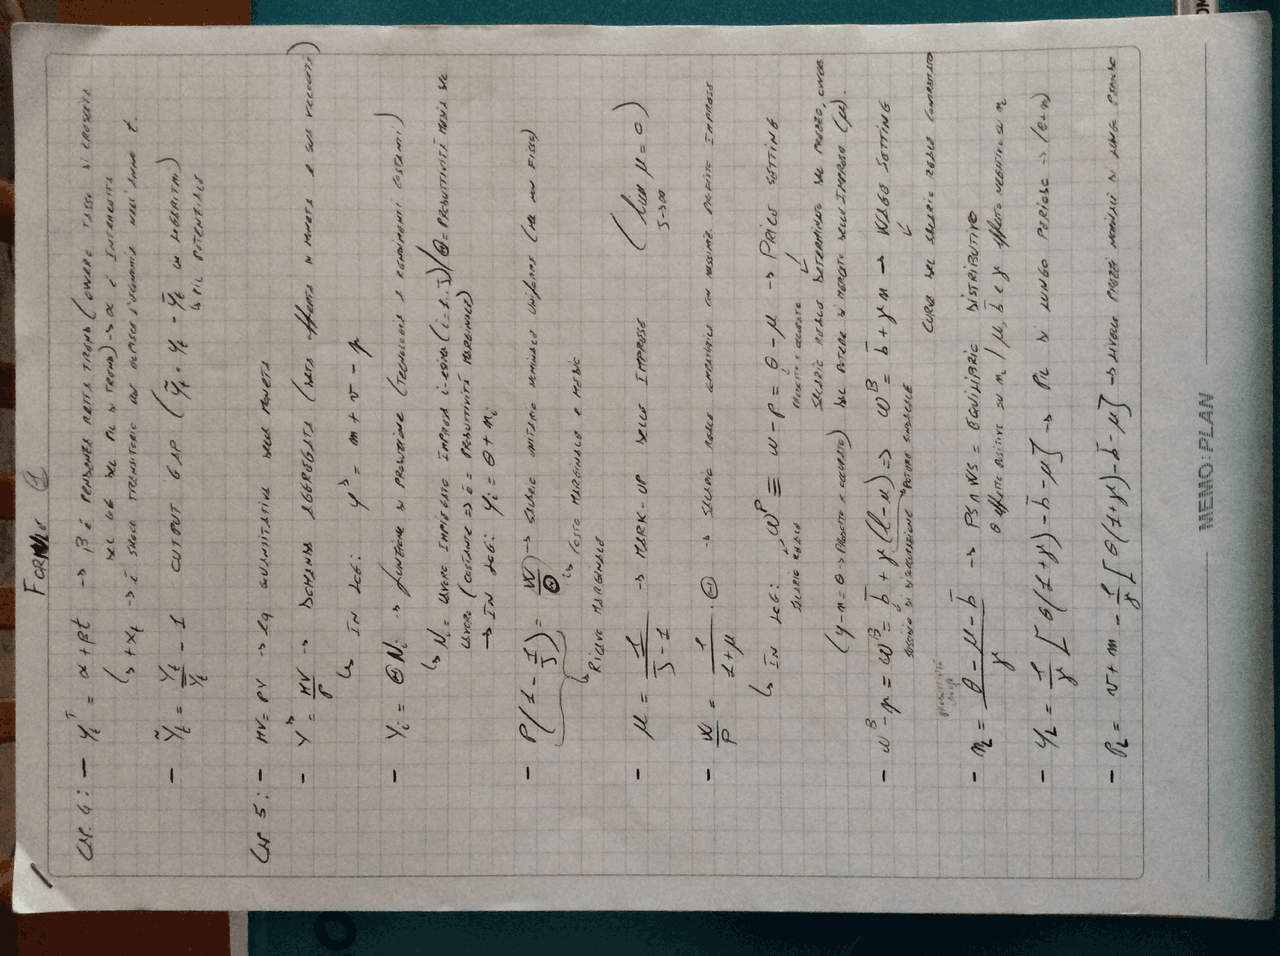 FORMULE 1
CAP. 4: - y_t^T = α + βt → β È PENDENZA RETTA TREND (OVVERO TASSO DI CRESCITA
DEL LOG DEL PIL DI TREND) → α È INTERCETTA
↳ + x_t → È SHOCK TRANSITORIO
- Ỹ_t = Y_t / Ȳ_t - 1 OUTPUT GAP (ỹ_t = y_t - ȳ_t IN LOGARITMI)
↳ PIL POTENZIALE
CAP 5: - MV = PY → EQ QUANTITATIVA DELLA MONETA
- Y^D = MV / P → DOMANDA AGGREGATA (DATA OFFERTA DI MONETA E SUA VELOCITÀ)
↳ IN LOG: y^D = m + v - p
- Y_i = Θ N_i → FUNZIONE DI PRODUZIONE (TECNOLOGIA A RENDIMENTI COSTANTI)
↳ N_i = LAVORO IMPIEGATO IMPRESA i-ESIMA (i = 1..J) / Θ = PRODUTTIVITÀ MEDIA DEL
LAVORO (COSTANTE => È = PRODUTTIVITÀ MARGINALE)
→ IN LOG: y_i = θ + n_i
- P(1 - 1/J) = W/Θ → SALARIO UNITARIO NOMINALE UNIFORME (MA NON FISSO)
↳ COSTO MARGINALE E MEDIO
↳ RICAVO MARGINALE
- μ = 1 / J-1 → MARK-UP DELLE IMPRESE (lim μ = 0)
J→∞
- W/P = 1 / 1+μ · Θ → SALARIO REALE COMPATIBILE CON MASSIMO PROFITTO IMPRESE
↳ IN LOG: ω^P ≡ w - p = θ - μ → PRICE SETTING
SALARIO REALE PRODOTTO X OCCUPATO
SALARIO REALE DETERMINATO DAL MERCATO, OVVERO
(y - n = θ → PRODOTTO X OCCUPATO) DAL POTERE DI MERCATO DELLE IMPRESE (μ).
- w^B - p = ω^B = b̄ + γ(l - u) => ω^B = b̄ + γn → WAGE SETTING
SUSSIDIO DI DISOCCUPAZIONE POTERE SINDACALE
CURVA DEL SALARIO REALE CONTRATTATO
PRODUTTIVITÀ
- n_L = θ - μ - b̄ / γ → PS ∩ WS = EQUILIBRIO DISTRIBUTIVO
θ EFFETTO POSITIVO SU n / μ, b̄ E γ EFFETTO NEGATIVO SU n
- y_L = 1/γ [θ(1+γ) - b̄ - μ] → PIL DI LUNGO PERIODO → (θ+n)
- P_L = v + m - 1/γ [θ(1+γ) - b̄ - μ] → LIVELLO PREZZI NOMINALI DI LUNGO PERIODO
MEMO:PLAN